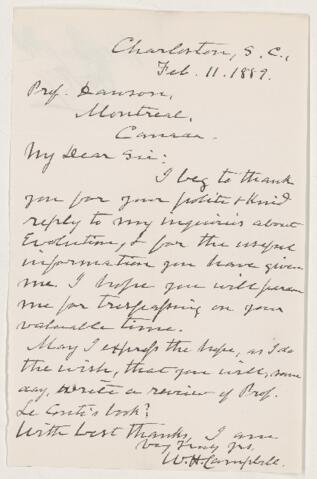 Charleston, S.C.,
Feb. 11. 1889.
Prof. Dawson,
Montreal,
Canada.
My Dear Sir:
I beg to thank
you for your polite & kind
reply to my inquiries about
Evolution, & for the useful
information you have given
me. I hope you will pardon
me for trespassing on your
valuable time.
May I express the hope, as I do
the wish, that you will, some
day, write a review of Prof.
Le Conte's book?
With best thanks, I am
Very Truly Yrs.
W. H. Campbell.